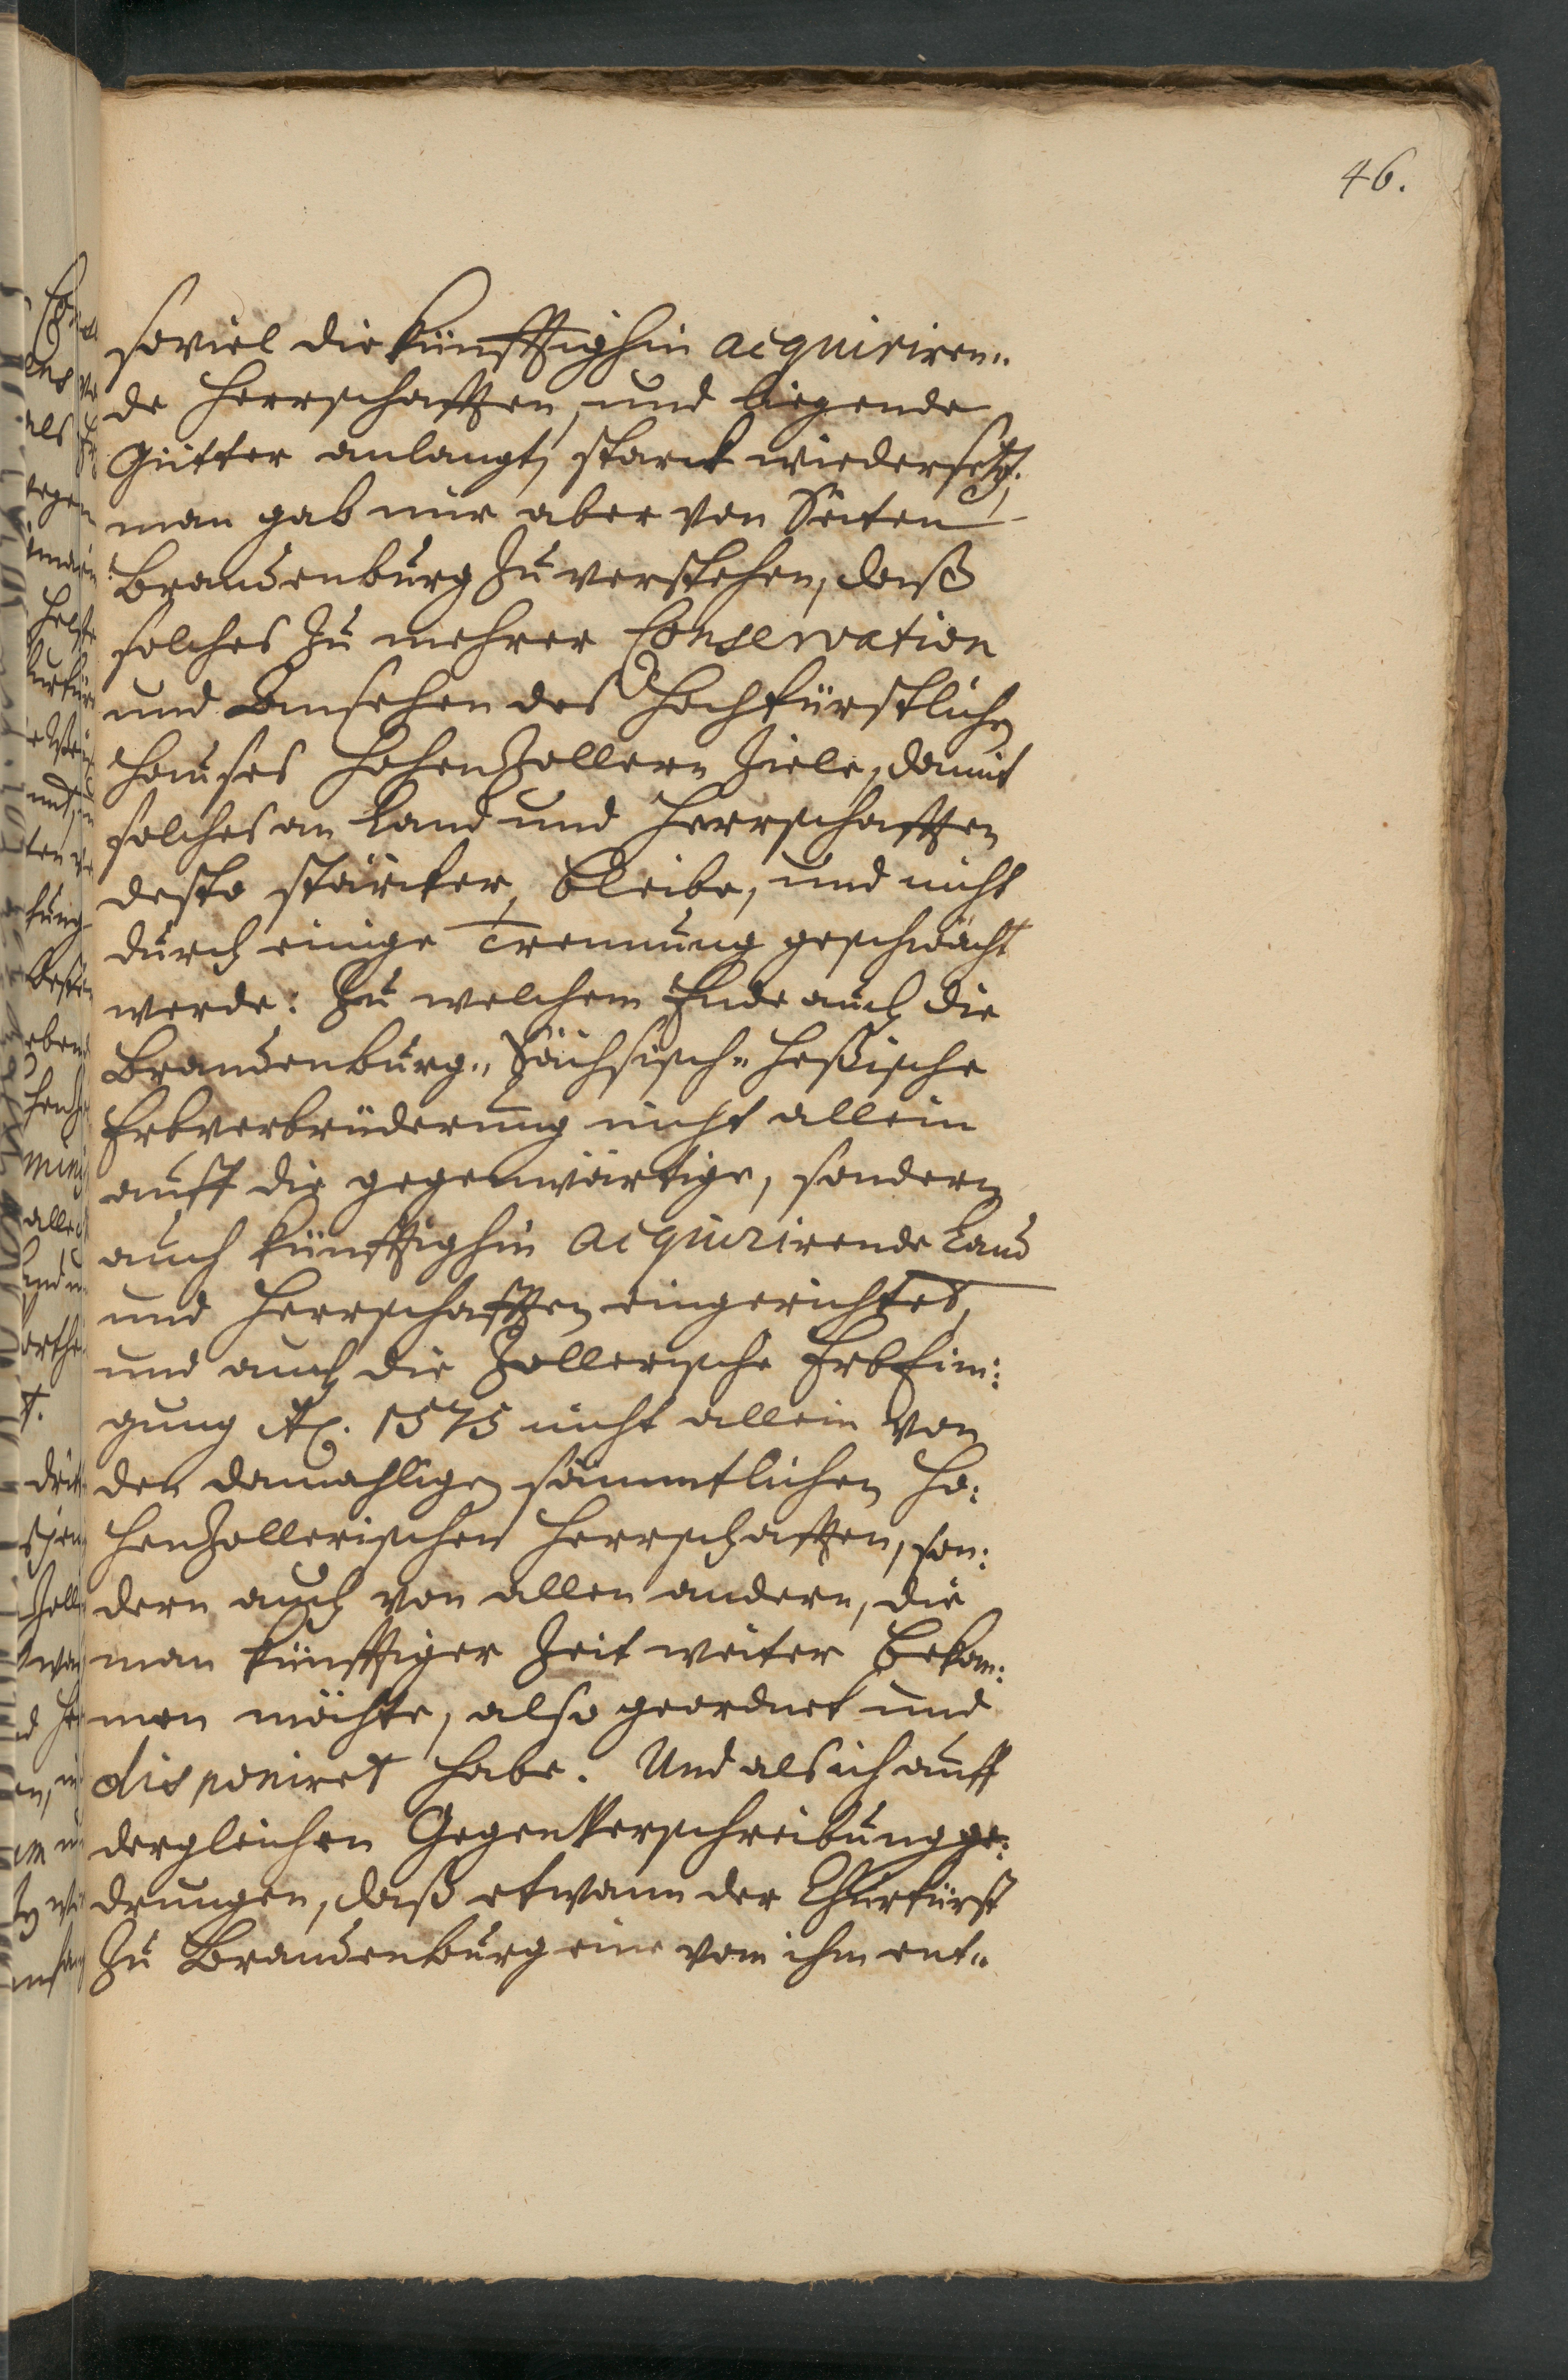 46.
soviel die künfftighin acquiriren„
de Herrschafften, und liegende
Gütter anlangt, starck wiedersetzt.
man gab mir aber von Seiten
Brandenburg zu verstehen, daß
solches zu mehrer Conservation
und Ansehen des Hochfürstlichen
Hauses Hohenzollern ziele, damit
solches an Land und Herrschafften
desto stärcker bleibe, und nicht
durch einige Trennung geschwächt
werde: Zu welchem Ende auch die
Brandenburg„ Sächsisch„ Heßische
Erbverbrüderung nicht allein
auff die gegenwärtige, sondern
auch künfftighin acquirirende Land
und Herrschafften eingerichtet,
und auch die Zollerische Erbeini:
gung Ao. 1575 nicht allein von
den damahligen sämmtlichen Ho:
henzollerischen Herrschafften, son:
dern auch von allen andern, die
man künfftiger Zeit weiter bekom:
men möchte, also geordnet und
disponiret habe. Und als ich auff
dergleichen Gegenverschreibung ge:
drungen, daß etwann der Churfürst
zu Brandenburg eine von ihm ent„